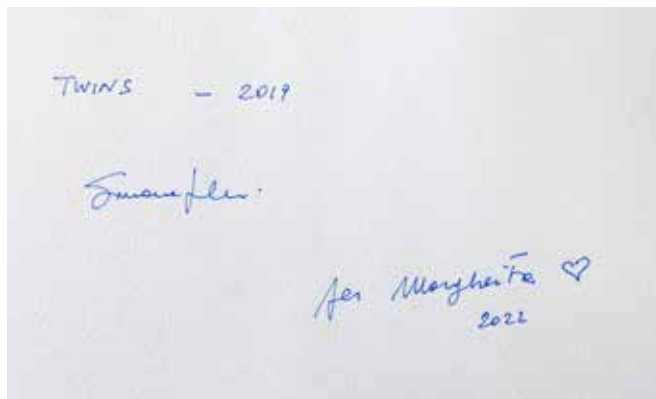 TWINS - 2019
Simone
per Margherita ♡
2022